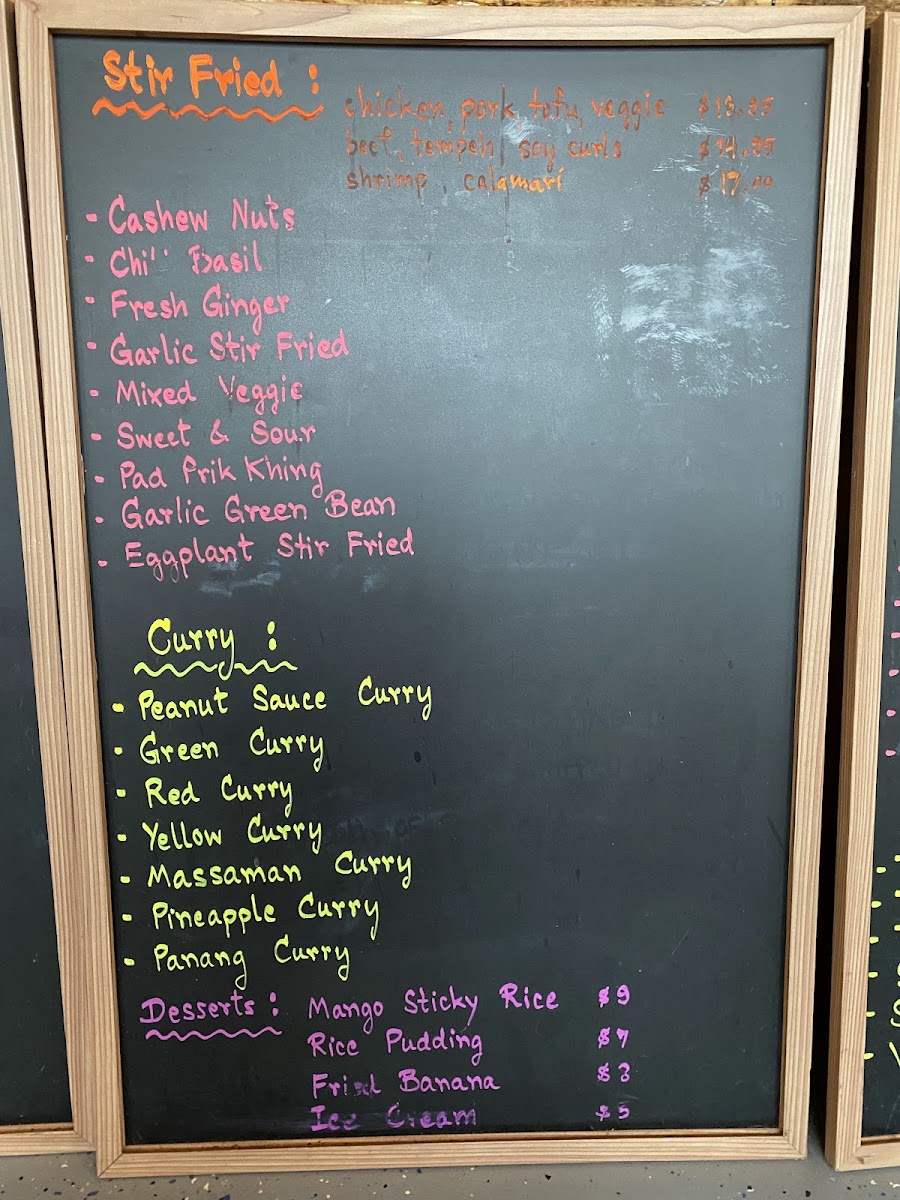 Stir Fried :
chicken, pork, tofu, veggie $13.95
beef, tempeh, soy curls $14.95
shrimp, calamari $17.00
- Cashew Nuts
- Basil
- Fresh Ginger
- Garlic Stir Fried
- Mixed Veggie
- Sweet & Sour
- Pad Prik Khing
- Garlic Green Bean
- Eggplant Stir Fried
Curry :
- Peanut Sauce Curry
- Green Curry
- Red Curry
- Yellow Curry
- Massaman Curry
- Pineapple Curry
- Panang Curry
Desserts : Mango Sticky Rice $9
Rice Pudding $7
Fried Banana
Ice Cream $5